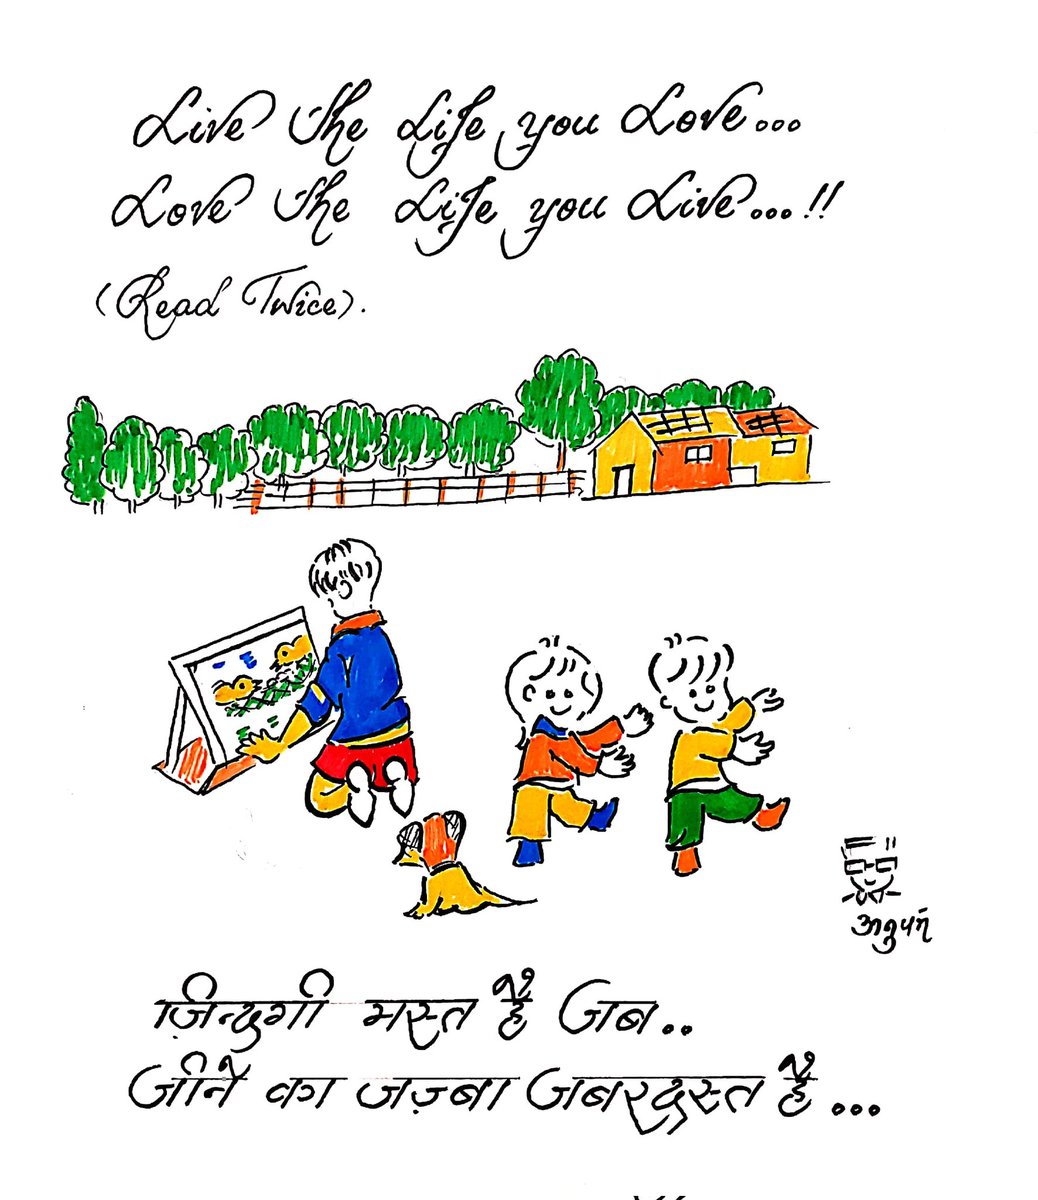 Live The Life you Love...
Love The Life you Live...!!
(Read Twice).
अनुपम
ज़िन्दगी मस्त है जब..
जीने का जज़्बा जबरदस्त है...